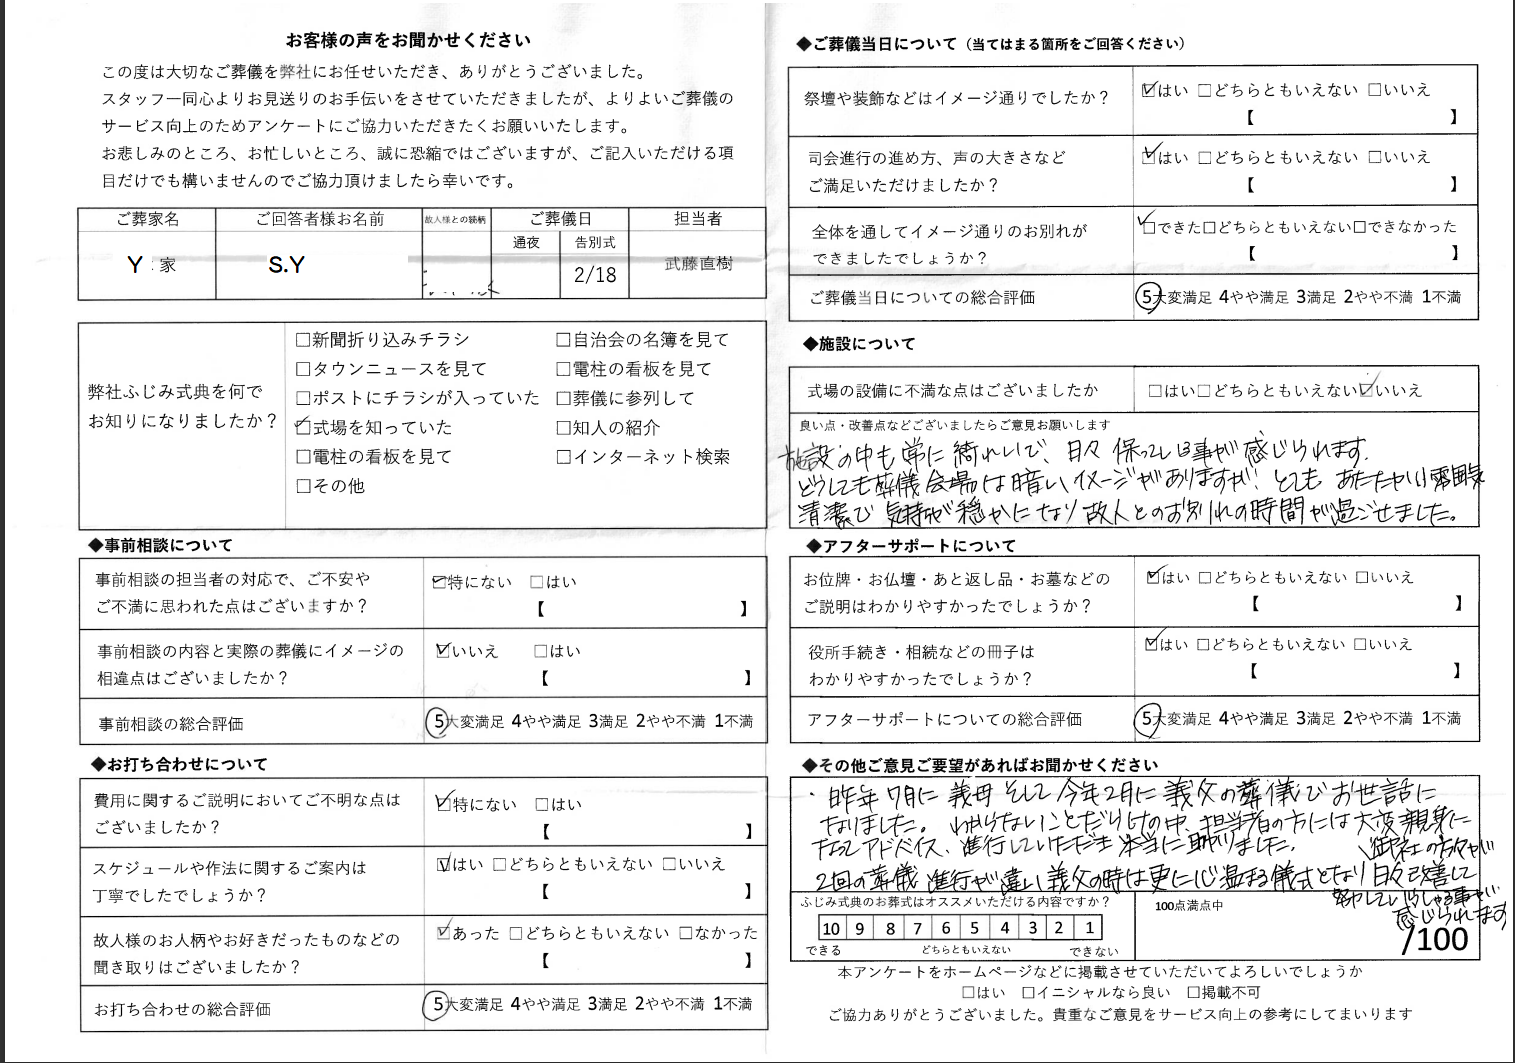 お客様の声をお聞かせください
この度は大切なご葬儀を弊社にお任せいただき、ありがとうございました。
スタッフ一同心よりお見送りのお手伝いをさせていただきましたが、よりよいご葬儀の
サービス向上のためアンケートにご協力いただきたくお願いいたします。
お悲しみのところ、お忙しいところ、誠に恐縮ではございますが、ご記入いただける項
目だけでも構いませんのでご協力頂けましたら幸いです。
ご葬家名 ご回答者様お名前 故人様との続柄 ご葬儀日 担当者
通夜 告別式
Y 家 S.Y 2/18 武藤直樹
弊社ふじみ式典を何で
お知りになりましたか?
□新聞折り込みチラシ □自治会の名簿を見て
□タウンニュースを見て □電柱の看板を見て
□ポストにチラシが入っていた □葬儀に参列して
☑式場を知っていた □知人の紹介
□電柱の看板を見て □インターネット検索
□その他
◆事前相談について
事前相談の担当者の対応で、ご不安や
ご不満に思われた点はございますか?
☑特にない □はい
【 】
事前相談の内容と実際の葬儀にイメージの
相違点はございましたか?
☑いいえ □はい
【 】
事前相談の総合評価 5大変満足 4やや満足 3満足 2やや不満 1不満
◆お打ち合わせについて
費用に関するご説明においてご不明な点は
ございましたか?
☑特にない □はい
【 】
スケジュールや作法に関するご案内は
丁寧でしたでしょうか?
☑はい □どちらともいえない □いいえ
【 】
故人様のお人柄やお好きだったものなどの
聞き取りはございましたか?
☑あった □どちらともいえない □なかった
【 】
お打ち合わせの総合評価 5大変満足 4やや満足 3満足 2やや不満 1不満
◆ご葬儀当日について（当てはまる箇所をご回答ください）
祭壇や装飾などはイメージ通りでしたか?
☑はい □どちらともいえない □いいえ
【 】
司会進行の進め方、声の大きさなど
ご満足いただけましたか?
☑はい □どちらともいえない □いいえ
【 】
全体を通してイメージ通りのお別れが
できましたでしょうか?
☑できた□どちらともいえない□できなかった
【 】
ご葬儀当日についての総合評価 5大変満足 4やや満足 3満足 2やや不満 1不満
◆施設について
式場の設備に不満な点はございましたか □はい□どちらともいえない☑いいえ
良い点・改善点などございましたらご意見お願いします
施設の中も常に綺れいで、日々 保っている事が感じられます。
どうしても葬儀会場は暗いイメージがありますが、とても あたたかい雰囲気
清潔で 気持が穏かになり故人とのお別れの時間が過ごせました。
◆アフターサポートについて
お位牌・お仏壇・あと返し品・お墓などの
ご説明はわかりやすかったでしょうか?
☑はい □どちらともいえない □いいえ
【 】
役所手続き・相続などの冊子は
わかりやすかったでしょうか?
☑はい □どちらともいえない □いいえ
【 】
アフターサポートについての総合評価 5大変満足 4やや満足 3満足 2やや不満 1不満
◆その他ご意見ご要望があればお聞かせください
・昨年7月に 義母 そして 今年2月に 義父の葬儀で お世話に
なりました。 わからないことだらけの中、担当者の方には大変親身に
なってアドバイス、進行していただき 本当に助かりました。
2回の葬儀 進行が違い義父の時は更に心温まる儀式となり 御社の方々が
日々改善して
努力していらっしゃる事が
感じられます
ふじみ式典のお葬式はオススメいただける内容ですか?
10 9 8 7 6 5 4 3 2 1
できる どちらともいえない できない
100点満点中
/100
本アンケートをホームページなどに掲載させていただいてよろしいでしょうか
□はい □イニシャルなら良い □掲載不可
ご協力ありがとうございました。貴重なご意見をサービス向上の参考にしてまいります